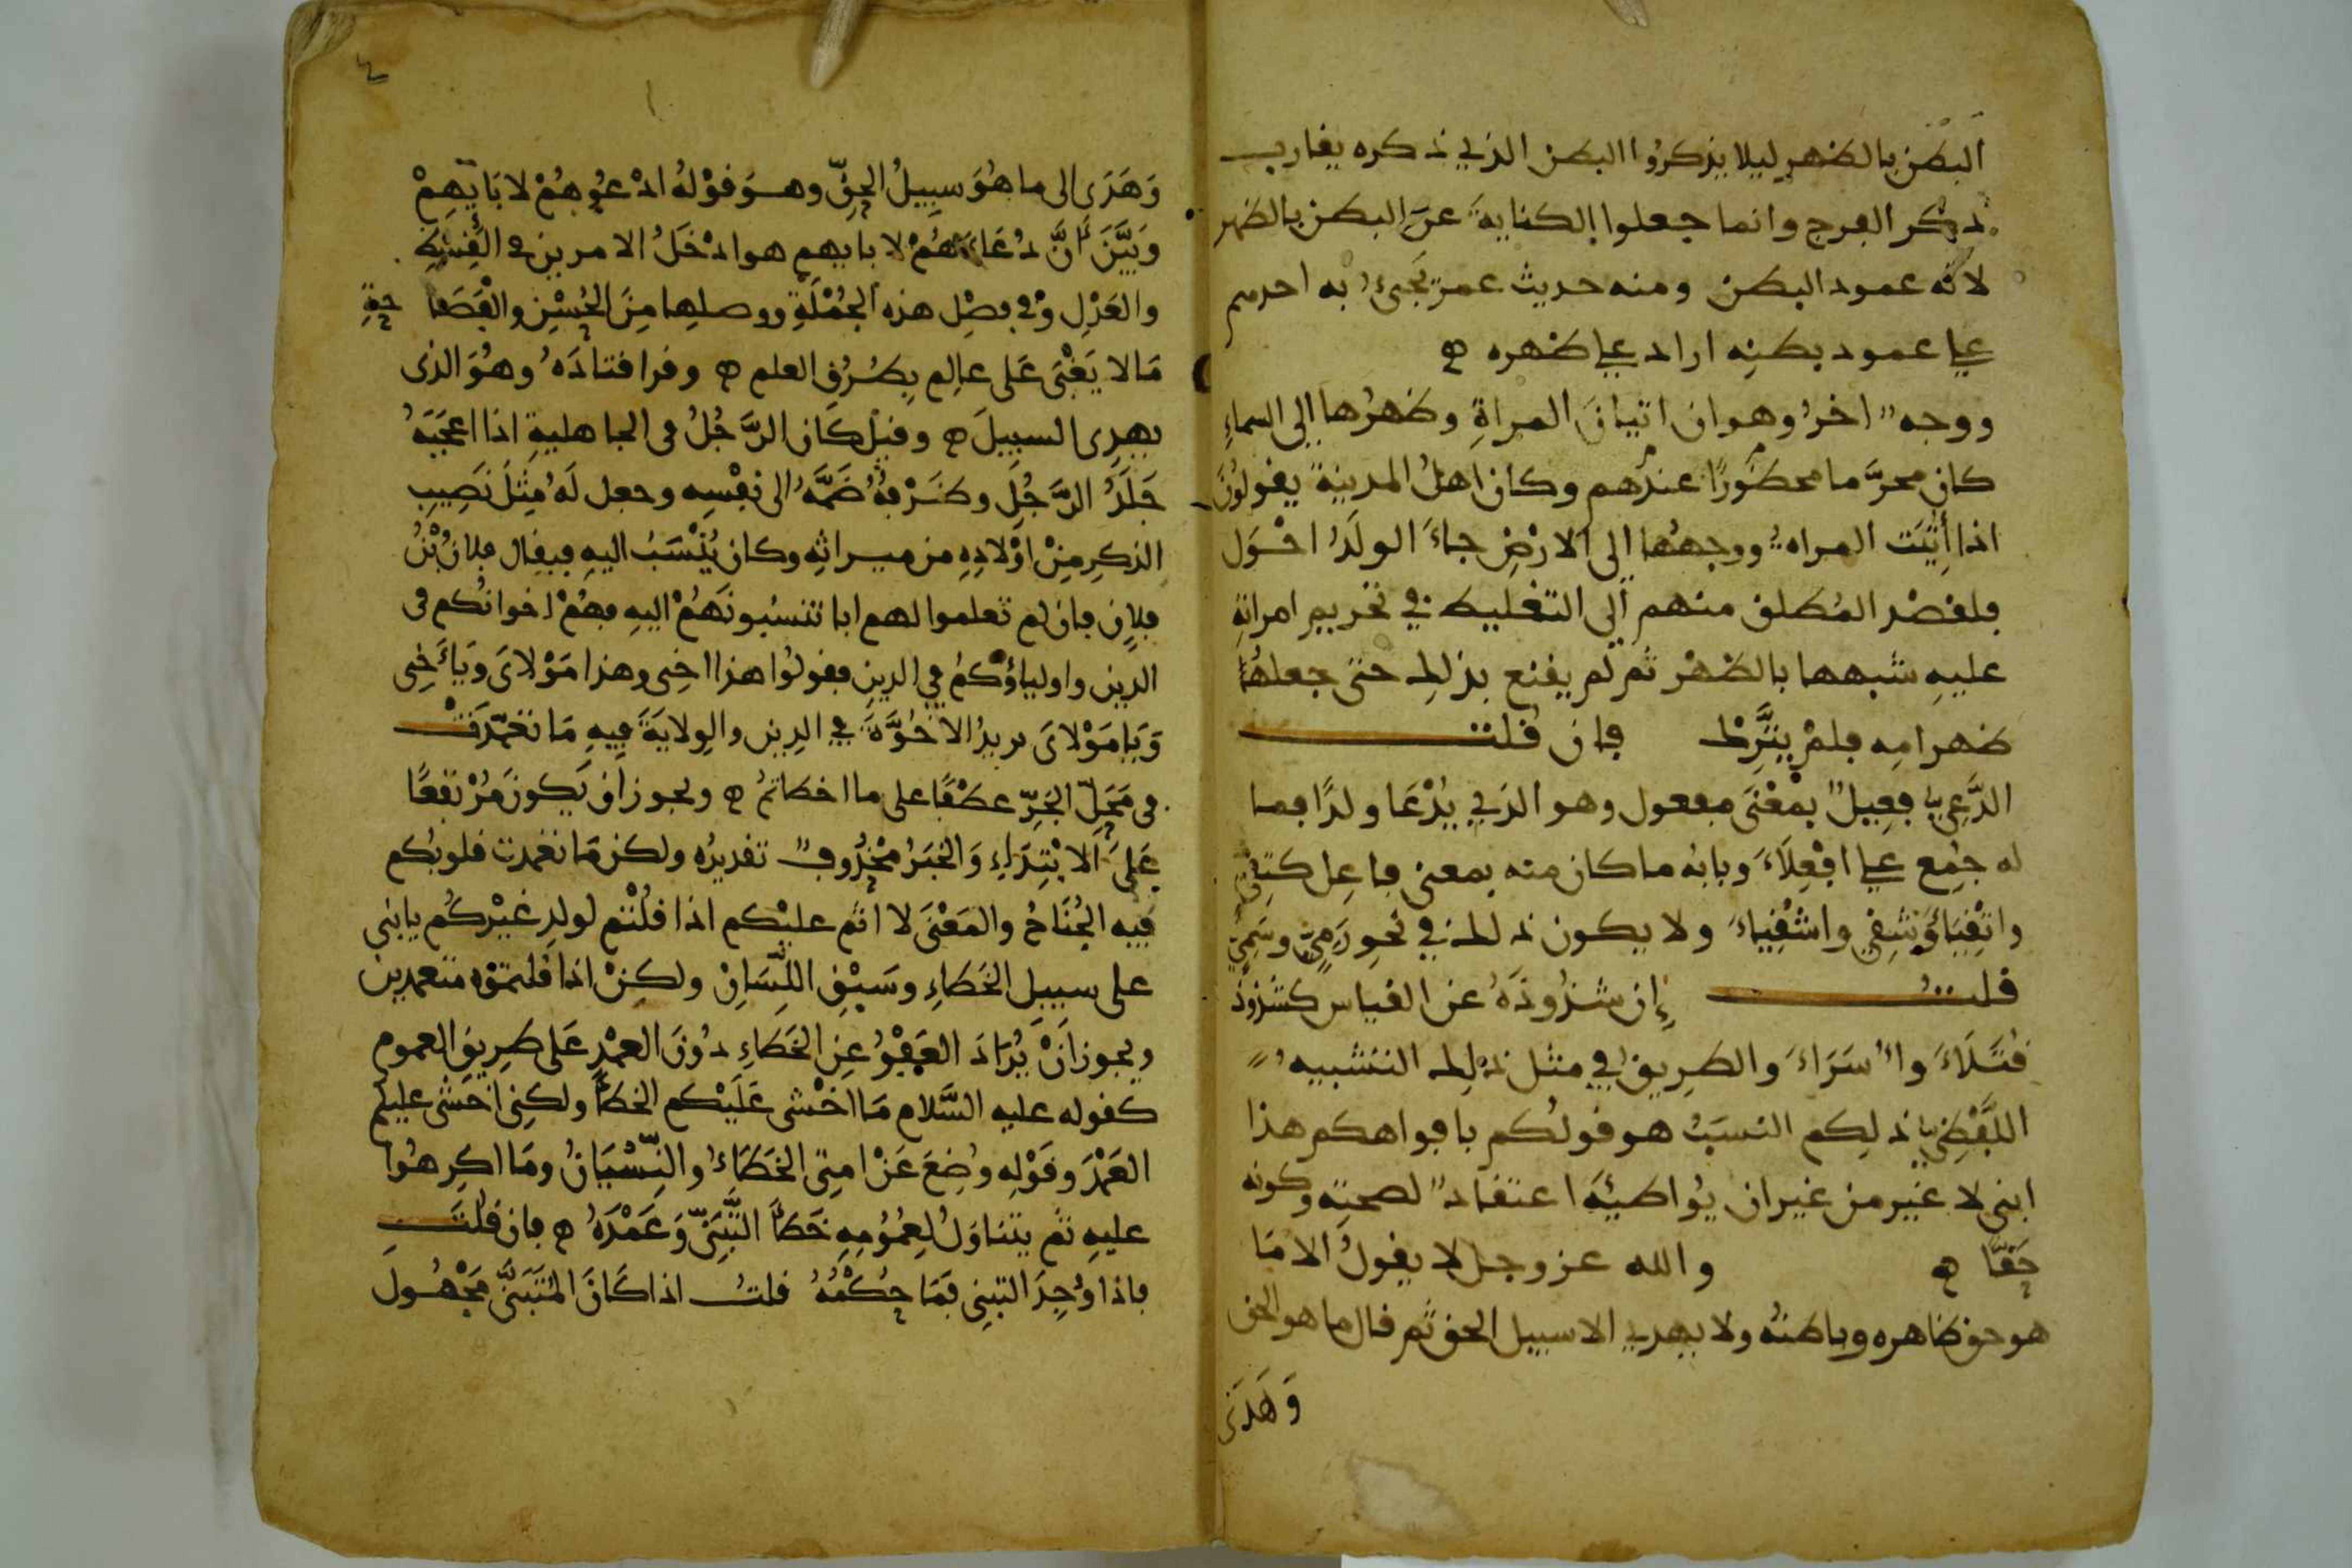 البطن بالظهر ليلا يذكروا البطن الذي ذكره يقارب
ذكر الفرج وانما جعلوا الكناية عن البطن بالظهر
لانه عمود البطن ومنه حديث عمر يجيء به احدهم
على عمود بطنه اراد على ظهره ه
ووجه اخر وهو ان اتيان المراة وظهرها الى السماء
كان محرّما محظورًا عندهم وكان اهل المدينة يقولون
اذا أتيت المراه ووجهها الى الارض جاء الولد احول
فلقصد المطلق منهم الى التغليظ في تحريم امراته
عليه شبهها بالظهر ثم لم يقنع بذلك حتى جعلها
ظهر امه فلم يترك فان قلت
الدَّعِيّ فعيل بمعنى مفعول وهو الذي يُدْعَا ولدًا فما
له جُمِع على افْعِلَاء وبابه ما كان منه بمعنى فاعل كتقيّ
واتقياء وشقي واشقياء ولا يكون ذلك في نحو رَمِيّ وسَمِيّ
قلت إن شذوذه عن القياس كشذوذ
قتلاء وأسراء والطريق في مثل ذلك التشبيه
اللفظي ذلكم النسب هو قولكم بافواهكم هذا
ابني لا غير من غير ان يُواطيئه اعتقاد لصحته وكونه
حَقًّا ه والله عز وجل لا يقول الا ما
هو حق ظاهره وباطنه ولا يهدي الا سبيل الحق ثم قال ما هو الحق
وَهَدَى
٤
وَهَدَى الى ما هُوَ سبيلُ الحقّ وهو قوْلهُ ادْعُوهُمْ لابَايِهِمْ
وَبَيَّنَ أنَّ دُعَاءَهُمْ لابايهم هو ادْخَلُ الامرين في القِسْطِ
والعَدْلِ وفي فصْل هذه الجُمْلَةِ ووصلها مِنَ الحُسْنِ والفَصَاحةِ
مَا لا يَغْبَى عَلى عالِم بِطُرُقِ العلم ه وقرا قتادَهُ وهُوَ الذى
يهدِى السبيلَ ه وقيل كَان الرَّجُلُ فى الجاهلية اذا اعجَبَهُ
جَلَدُ الرَّجُلِ وظَرْفُهُ ضَمَّهُ الى نفْسِه وجعل لَهُ مِثْلَ نَصِيبِ
الذكرِ مِنْ اوْلادِهِ من ميراثِه وكان يُنْسَبُ اليهِ فيقال فلانُ بْنُ
فلان فان لم تعلموا لهم ابا تنسبونَهُمْ اليهِ فهُمْ اخوانُكم فى
الدّين واولياؤُكُم في الدين فقولُوا هذا اخِى وهذا مَوْلاىَ وَيَاَخِى
وَيَا مَوْلاىَ يريدُ الاخُوَّةَ في الدِين والوِلايَةَ فِيهِ مَا تعمّدَتْ
فى مَحَلّ الجَرّ عطْفًا على ما اخطاتمُ ه ويجوز ان يَكونَ مُرْتفِعًا
عَلَى الابْتِدَاءِ وَالخَبَرُ مَحْذُوف تقديرُه ولكن مَا تعمدت قلوبُكم
فيه الجُنَاحُ والمَعْنَى لا اثم عليْكم اذا قُلْتم لولدِ غيْرِكُم يابني
على سبيل الخَطَاءِ وسَبْقِ اللِّسَانِ ولكِنْ اذا قلتموه متعمدين
ويجوز أنْ يُرَادَ العَفْوُ عنِ الخَطَاءِ دُونَ العمْدِ عَلى طرِيقِ العموم
كقوله عليه السَّلام مَا اخْشى عَلَيْكم الخطأ ولكنِى اخشى عليكم
العَمْدَ وقَوْلِهِ وُضِعَ عَنْ امتِى الخَطَاءُ والنِّسْيَانُ ومَا اكرِهُوا
عليهِ ثم يتناوَلُ لِعُمُومِهِ خَطأَ التَّبَنّى وَعَمْدَهُ ه فان قلتَ
فاذا وُجِدَ التبنِى فَمَا حُكْمُهُ قلتُ اذا كَانَ المُتَبَنَّى مَجْهُولَ